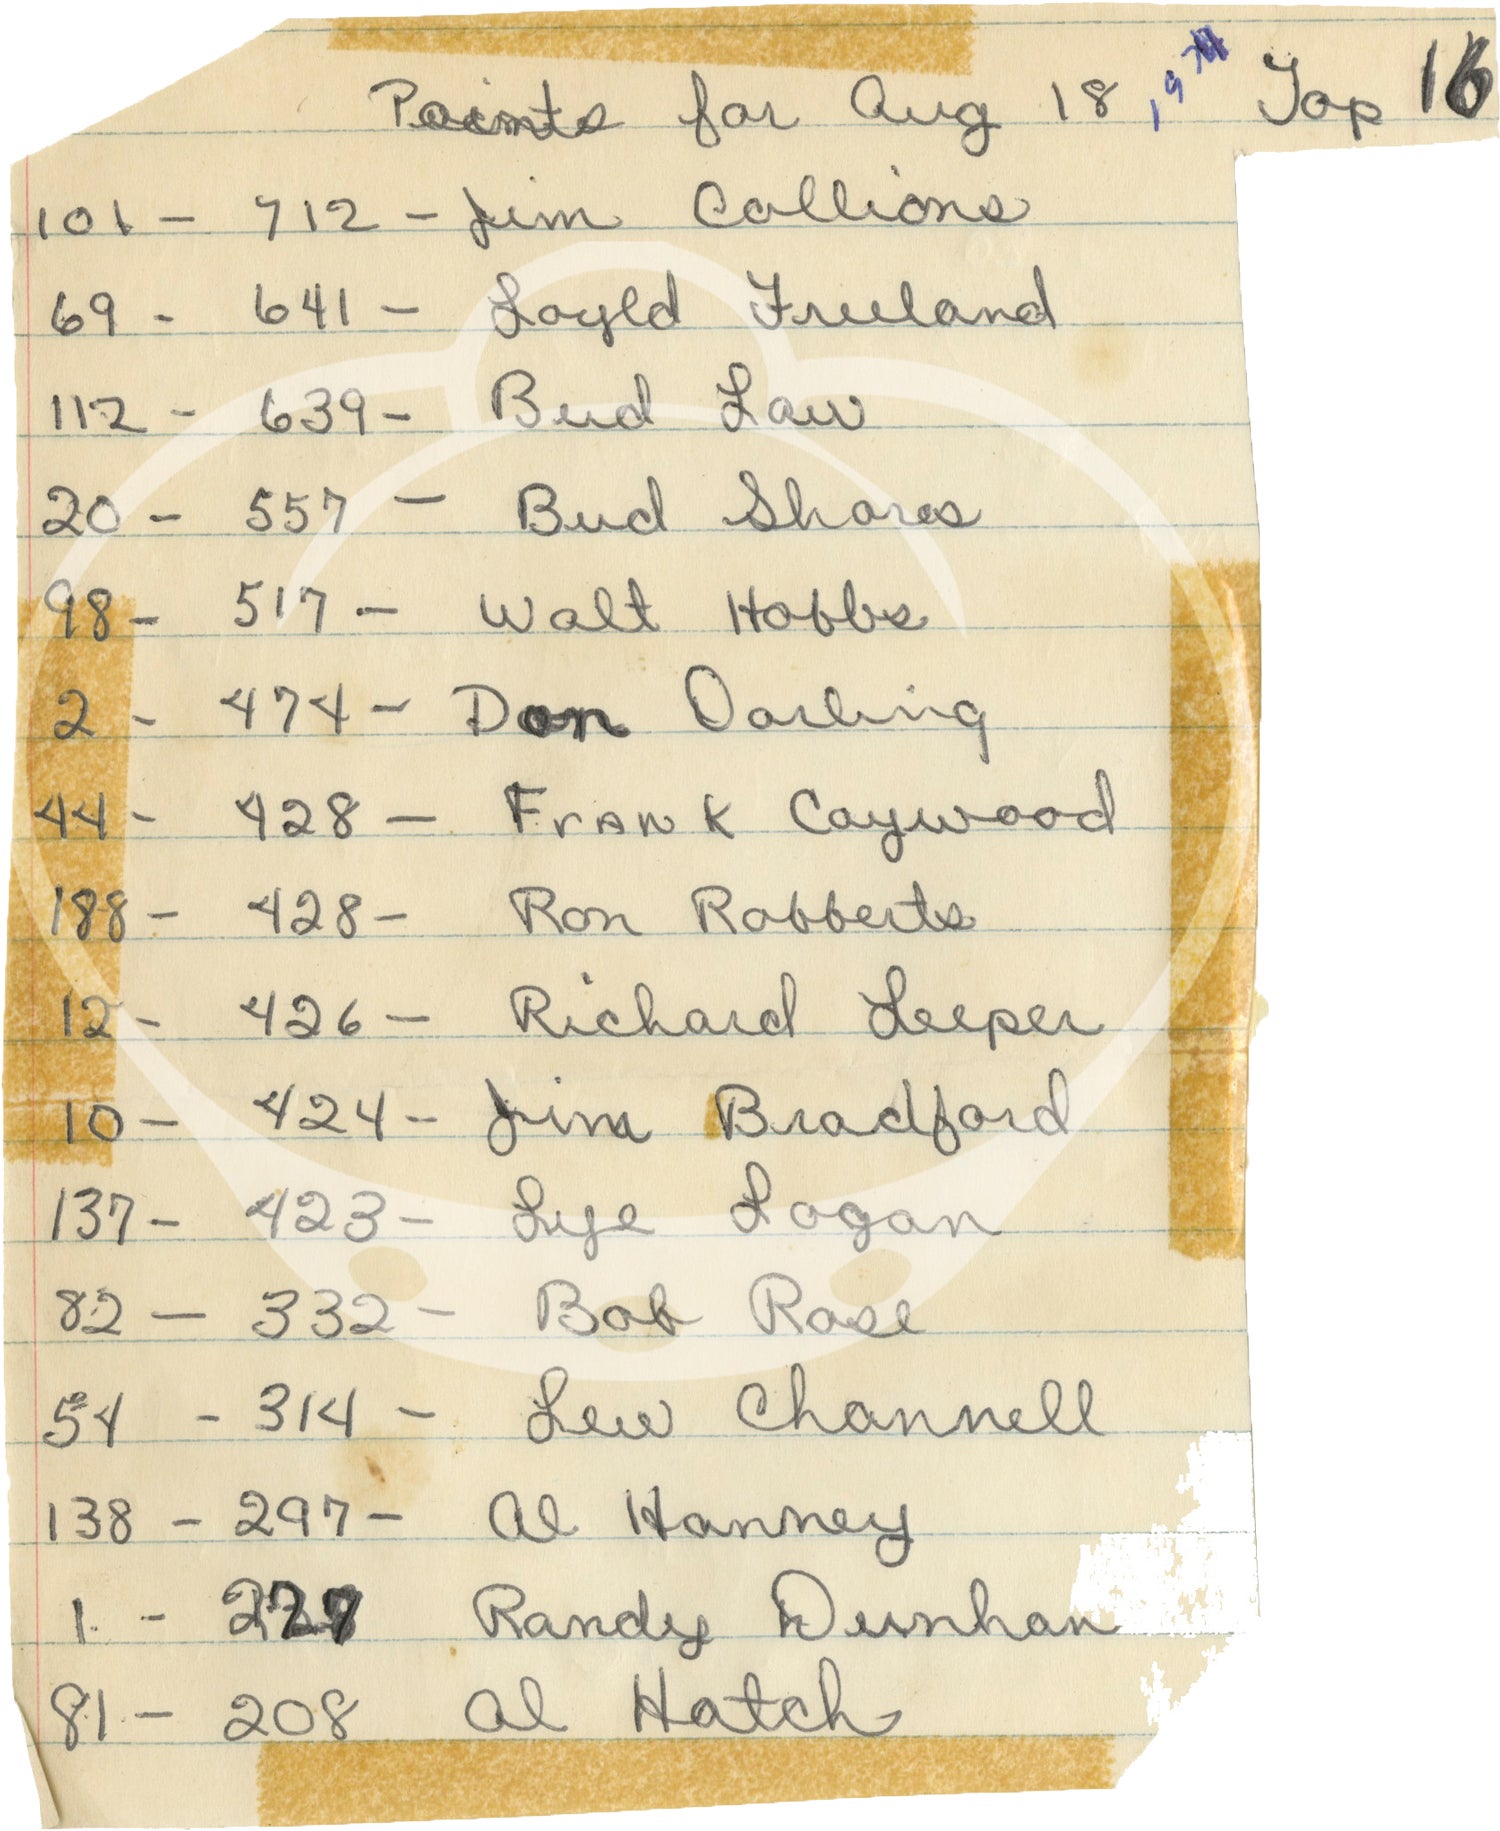 Points for Aug 18, 19 Top 16
101 - 712 - Jim Collions
69 - 641 - Loyld Freeland
112 - 639 - Bud Law
20 - 557 - Bud Shores
98 - 517 - Walt Hobbs
2 - 474 - Don Darling
44 - 428 - Frank Caywood
188 - 428 - Ron Robberts
12 - 426 - Richard Leeper
10 - 424 - Jim Bradford
137 - 423 - Lye Logan
82 - 332 - Bob Rose
54 - 314 - Lew Channell
138 - 297 - Al Hanney
1 - 277 Randy Dunhan
81 - 208 Al Hatch